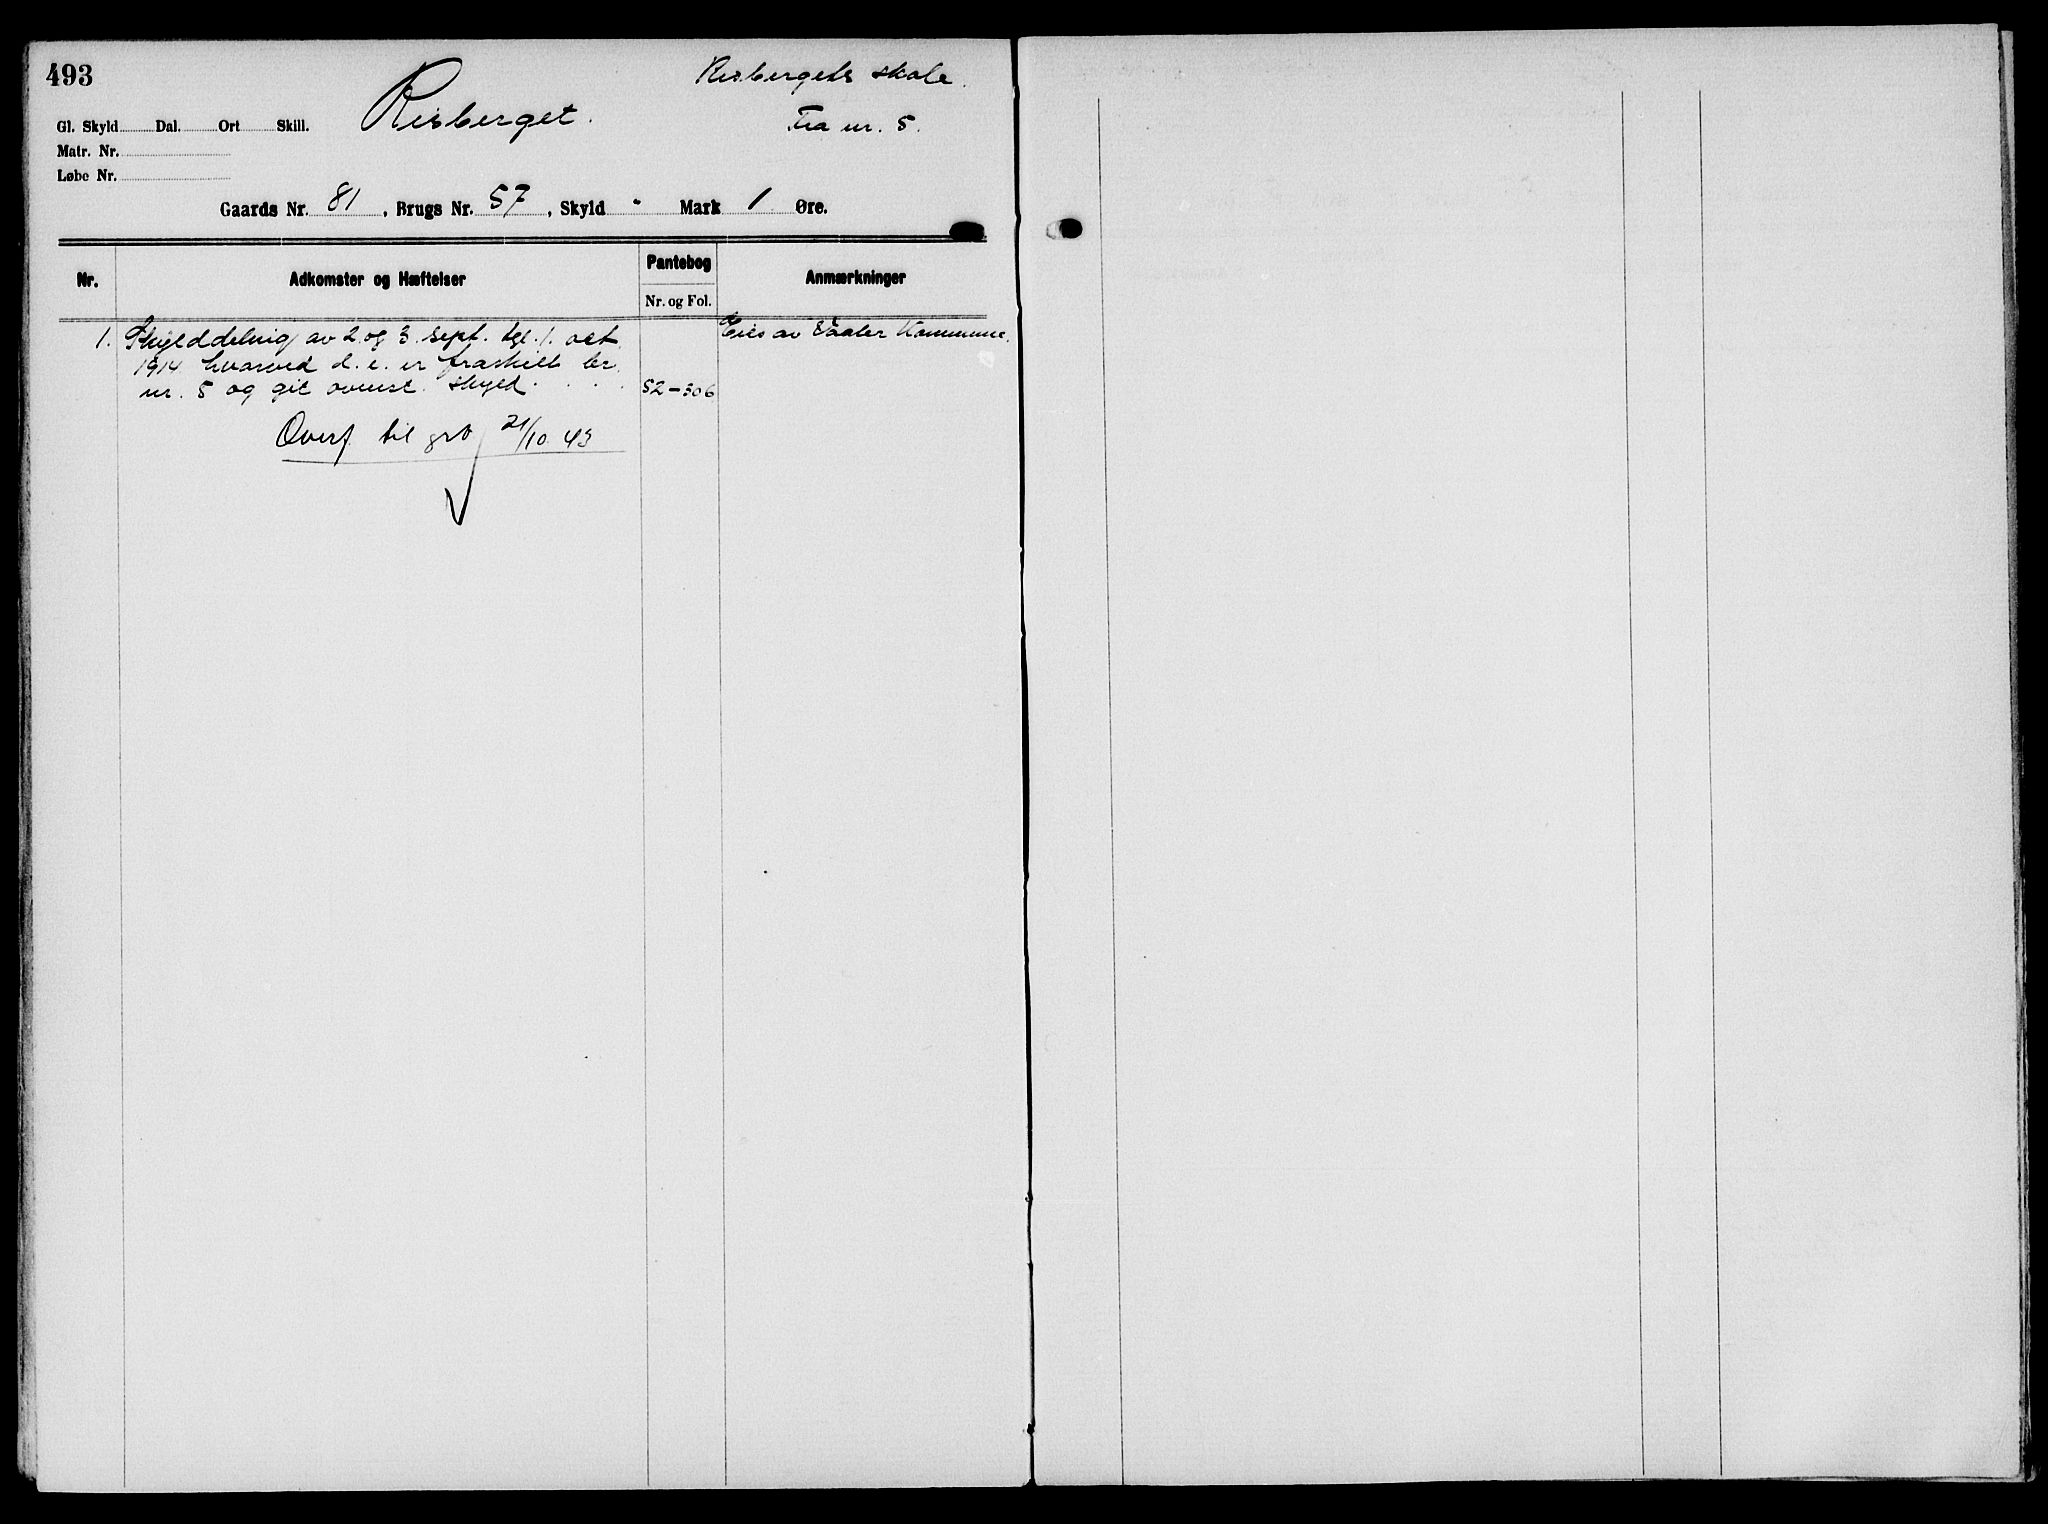 493
Risbergets skole.
Risberget.
Fra nr. 5.
Gl. Skyld Dal. Ort Skill.
Matr. Nr.
Løbe Nr.
Gaards Nr. 81, Brugs Nr. 57, Skyld " Mark 1 Øre.
Nr. Adkomster og Hæftelser Pantebog Nr. og Fol. Anmærkninger
1. Skylddeling av 2. og 3. sept. tgl. 1. okt. Eies av Vaaler Kommune.
1914 hvorved d. e. er fraskilt br.
nr. 5 og git ovenst. skyld . . . 52-306
Overf til grb 21/10 43